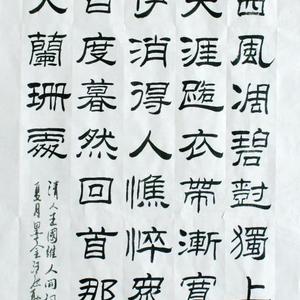 西風凋碧樹獨上
天涯路衣帶漸寬
伊消得人憔悴衆
百度暮然回首那
火蘭珊處
清人王國維人間詞
夏月